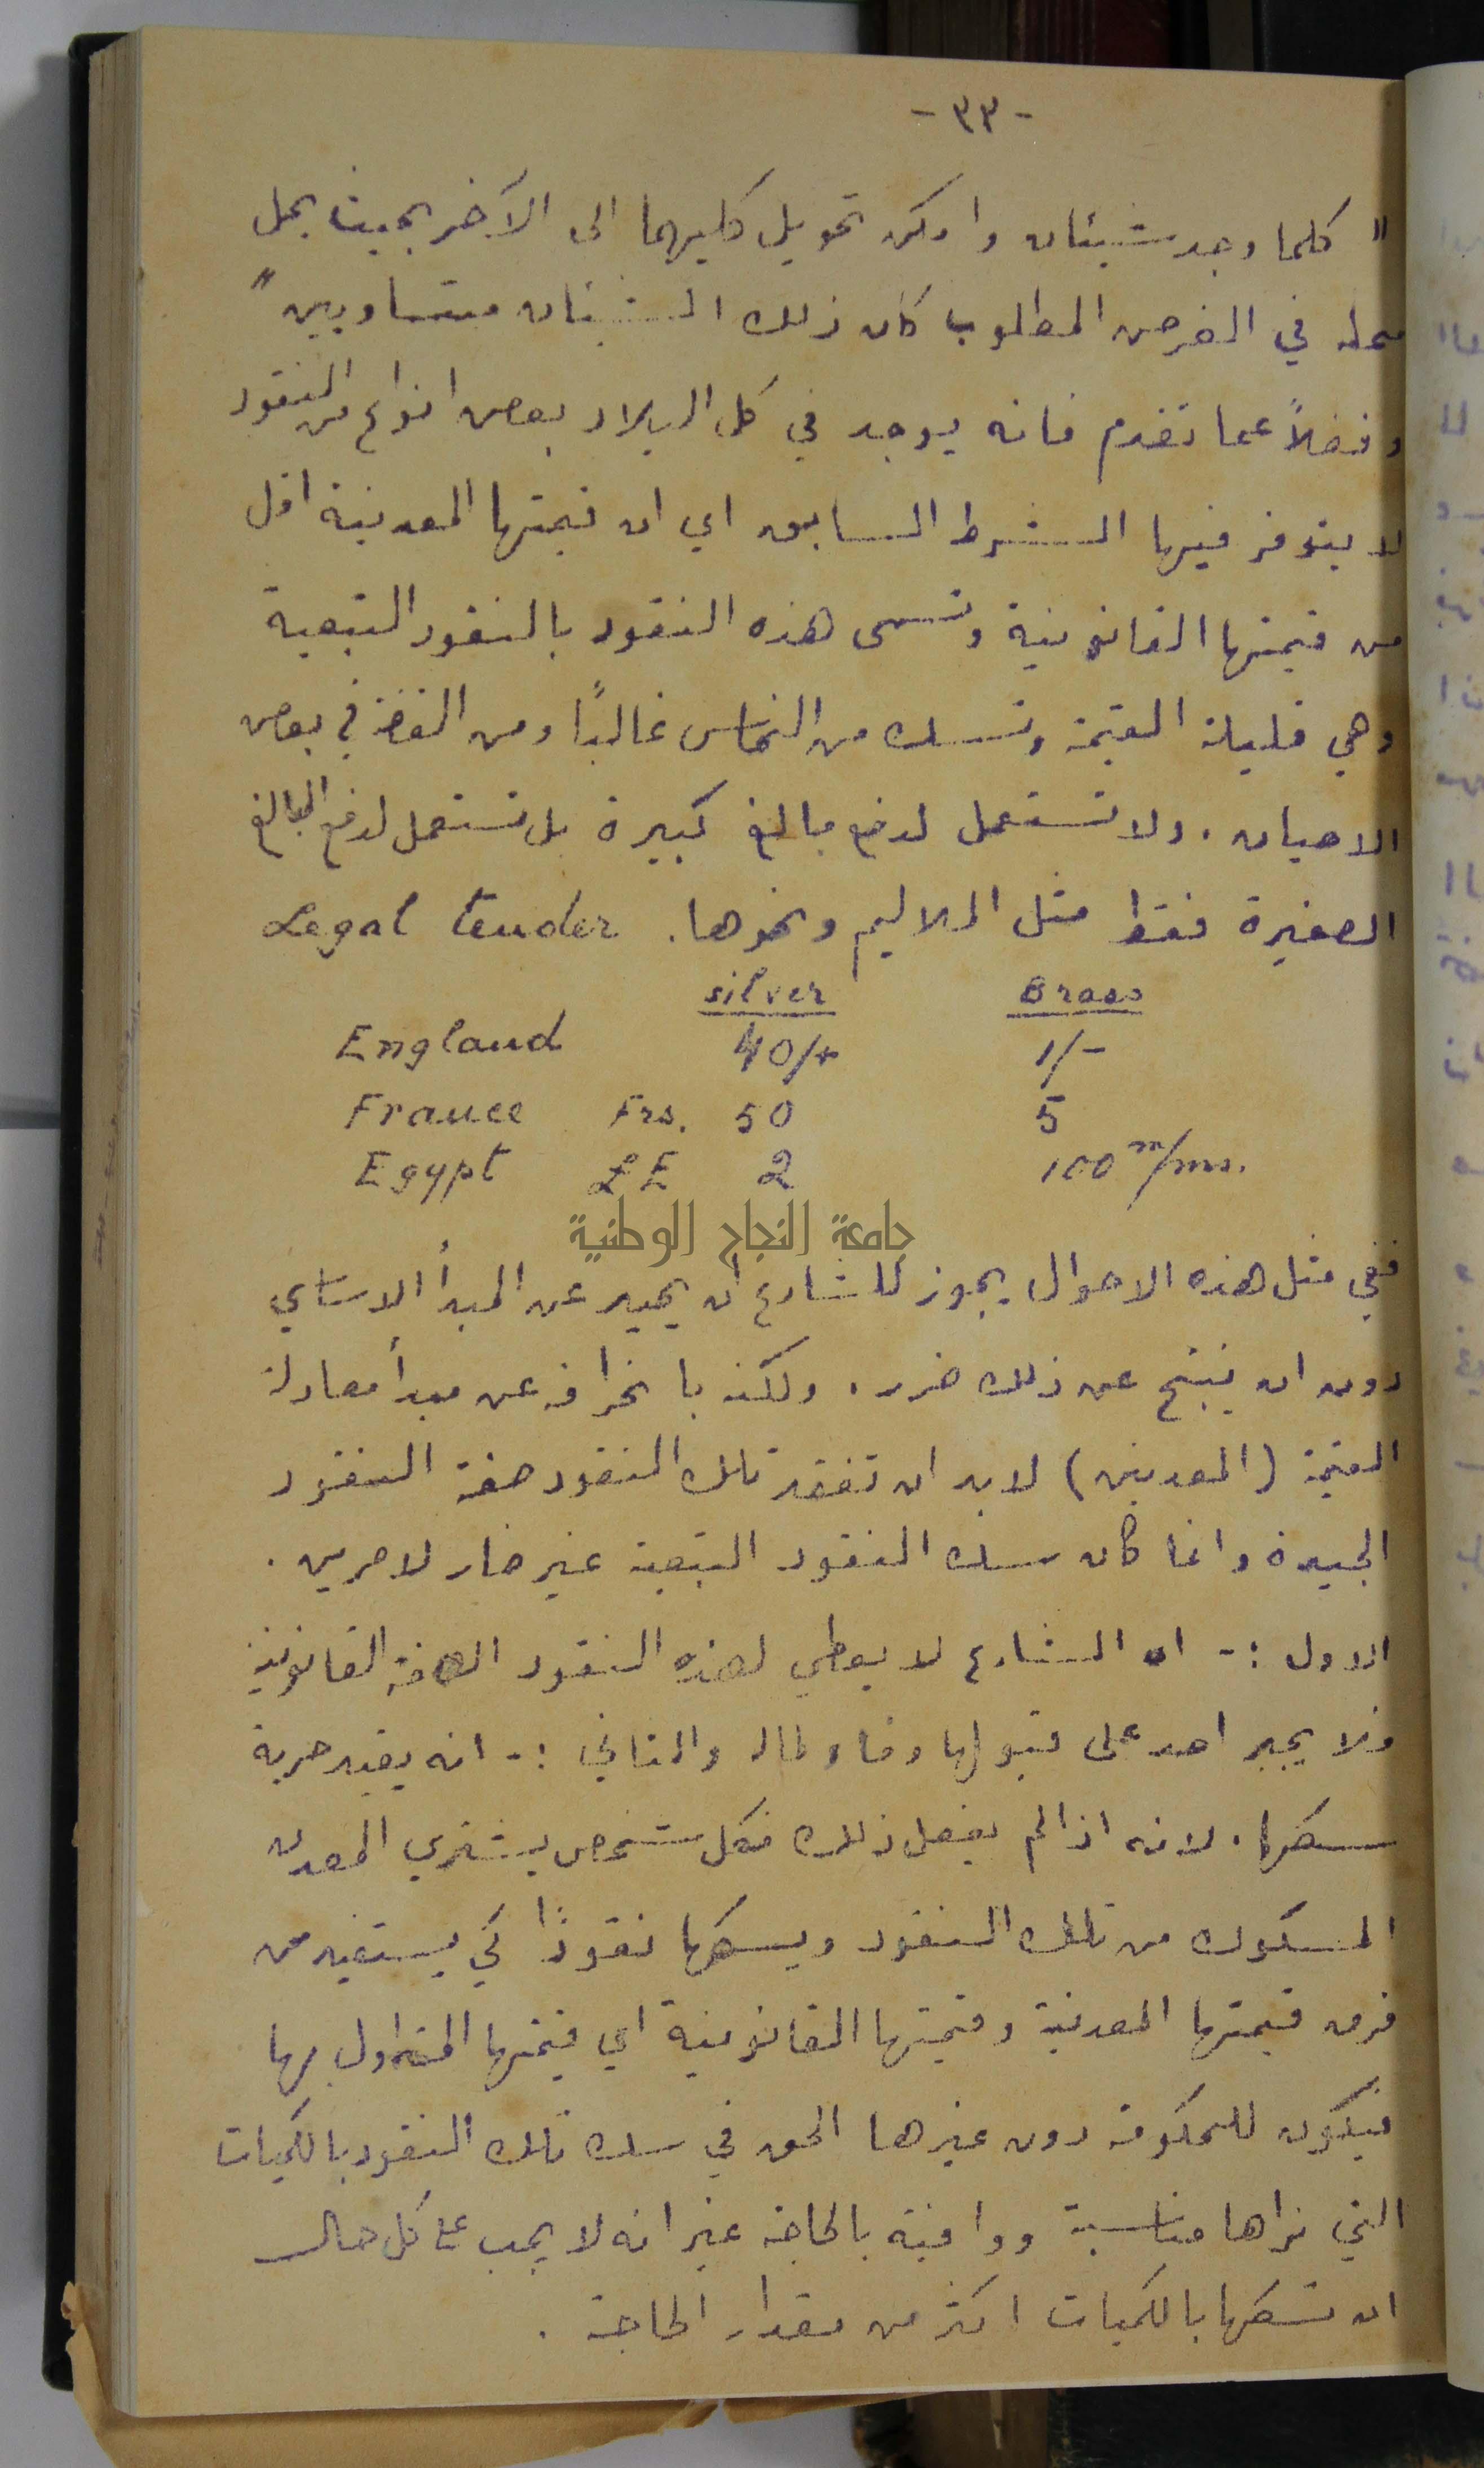 - ٣٣ -
" كلما وجد شيئان وامكن تحويل كليهما الى الآخر بحيث يحل
محله في الغرض المطلوب كان ذلك الشيئان متساويين "
وفضلاً عما تقدم فانه يوجد في كل البلاد بعض انواع من النقود
لا يتوفر فيها الشرط السابق اي ان قيمتها المعدنية اقل
من قيمتها القانونية وتسمى هذه النقود بالنقود التبعية
وهي قليلة القيمة وتسك من النحاس غالبًا ومن الفضة في بعض
الاحيان . ولا تستعمل لدفع مبالغ كبيرة بل تستعمل لدفع المبالغ
الصغيرة فقط مثل الملاليم ونحوها . Legal tender
silver Brass
England 40/- 1/-
France Frs. 50 5
Egypt £E 2 100 m/ms.
جامعة النجاح الوطنية
ففي مثل هذه الاحوال يجوز للشارع ان يحيد عن المبدأ الاساسي
دون ان ينتج عن ذلك ضرر . ولكنه بانحرافه عن مبدأ معادلة
القيمة ( المعدنين ) لا بد ان تفقد تلك النقود صفة النقود
الجيدة وانما كان سك النقود التبعية غير ضار لامرين .
الاول :- ان الشارع لا يعطي لهذه النقود الصفة القانونية
فلا يجبر احد على قبولها وفاء لماله والثاني :- انه يقيد حرية
سكها . لانه اذا لم يفعل ذلك فكل شخص يشتري المعدن
المسكوك من تلك النقود ويسكها نقودًا كي يستفيد من
فرق قيمتها المعدنية وقيمتها القانونية اي قيمتها المتداول بها
فيكون للحكومة دون غيرها الحق في سك تلك النقود بالكميات
التي تراها مناسبة ووافية بالحاجة غير انه لا يجب على كل حال
ان تسكها بالكميات اكثر من مقدار الحاجة .